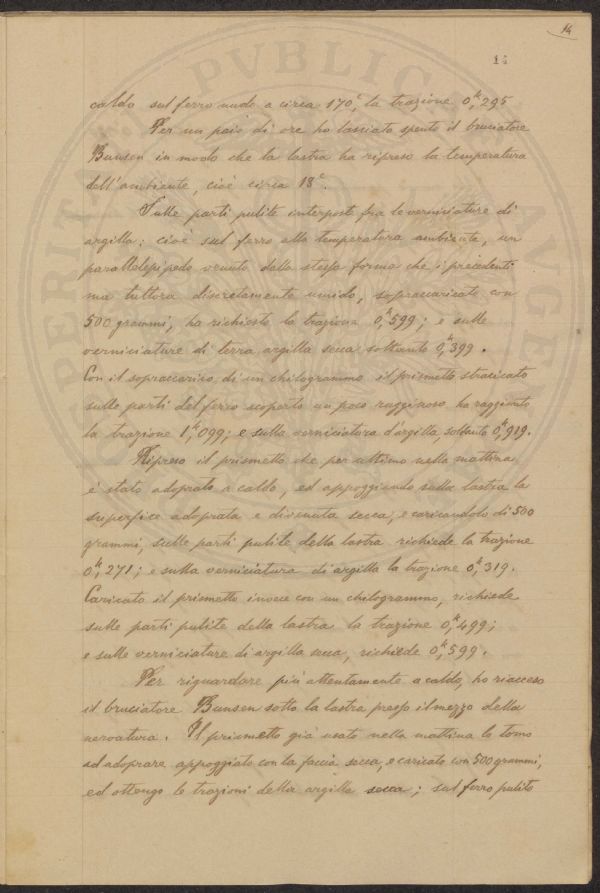 14
14
caldo sul ferro nudo a circa 170°, la trazione 0,ᵏ295
Per un paio di ore ho lasciato spento il bruciatore
Bunsen in modo che la lastra ha ripreso la temperatura
dell'ambiente, cioè circa 18°.
Sulle parti pulite interposte fra le verniciature di
argilla: cioè sul ferro alla temperatura ambiente, un
parallelepipedo venuto dalla stessa forma che i precedenti
ma tuttora discretamente umido, sopraccaricato con
500 grammi, ha richiesto la trazione 0,ᵏ599; e sulle
verniciature di terra argilla secca soltanto 0,ᵏ399.
Con il sopraccarico di un chilogrammo il prismetto straccicato
sulle parti del ferro scoperto un poco rugginoso ha raggiunto
la trazione 1,ᵏ099; e sulla verniciatura d'argilla, soltanto 0,ᵏ919.
Ripreso il prismetto che per ultimo nella mattina
è stato adoprato a caldo, ed appoggiando sulla lastra la
superfice adoprata e divenuta secca, e caricandolo di 500
grammi, sulle parti pulite della lastra richiede la trazione
0,ᵏ271; e sulla verniciatura di argilla la trazione 0,ᵏ319.
Caricato il prismetto invece con un chilogrammo, richiede
sulle parti pulite della lastra la trazione 0,ᵏ499;
e sulle verniciature di argilla secca, richiede 0,ᵏ599.
Per riguardare più attentamente a caldo, ho riacceso
il bruciatore Bunsen sotto la lastra presso il mezzo della
nervatura. Il prismetto già usato nella mattina lo torno
ad adoprare appoggiato con la faccia secca, e caricato con 500 grammi,
ed ottengo le trazioni della argilla secca; sul ferro pulito
PVBLICAE
AVGEN
PERITAN